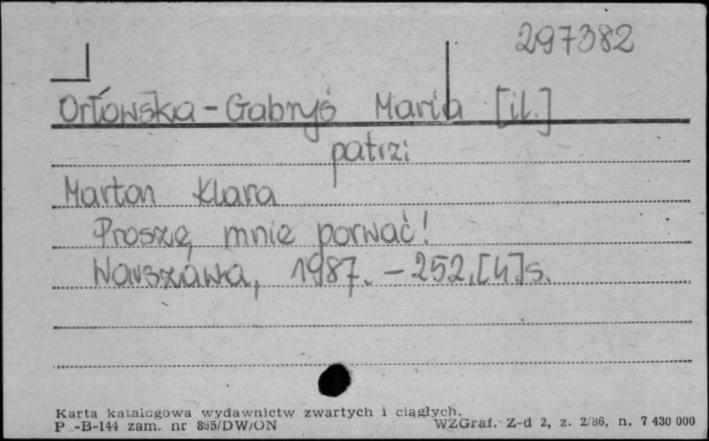 297382
Orłowska-Gabryś Maria [il.]
patrzi
Marton Klara
Proszę mnie porwać!
Warszawa, 1987. - 252,[4]s.
Karta katalogowa wydawnictw zwartych i ciągłych.
P.-B-144 zam. nr 855/DW/ON WZGraf. Z-d 2, z. 2/86, n. 7 430 000